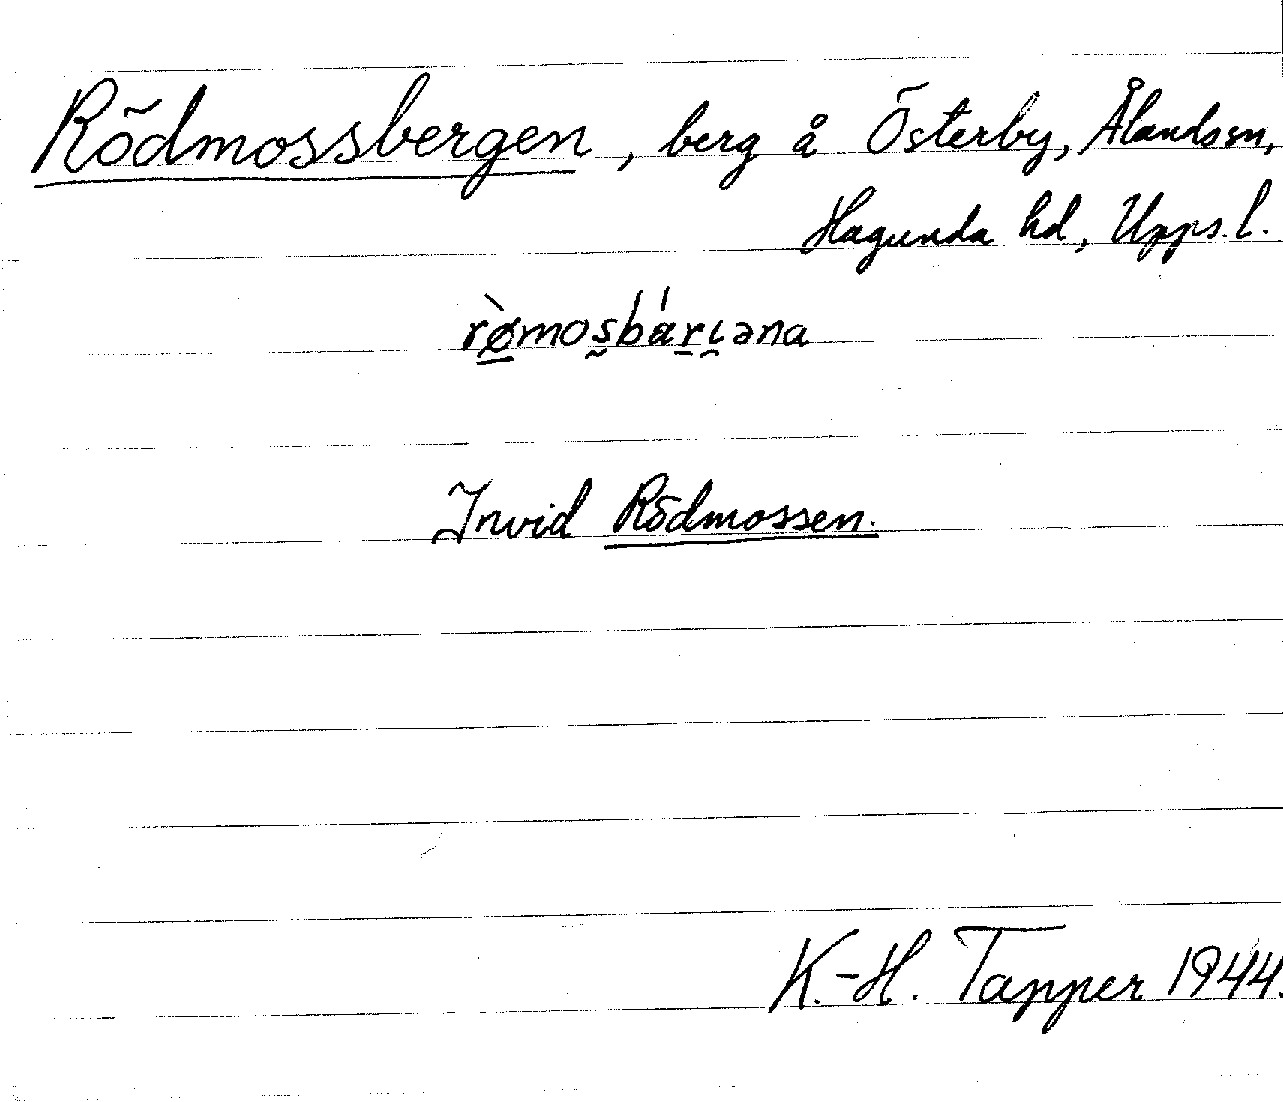 Rödmossbergen, berg å Österby, Ålands sn,
Hagunda hd, Upps. l.
rø̀mosbárɩəna
Invid Rödmossen.
K.-H. Tapper 1944.